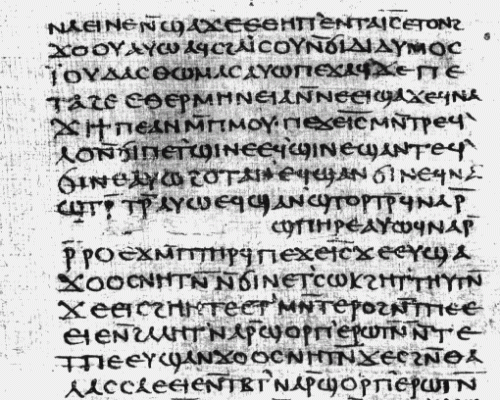 ⲛⲁⲉⲓⲛⲉⲛ̅ϣⲁϫⲉⲉⲑⲏⲡ'ⲉⲛⲧⲁⲓ̅ⲥ̅ⲉⲧⲟⲛϩ
ϫⲟⲟⲩⲁⲩⲱⲁϥⲥϩⲁⲓⲥⲟⲩⲛ̅ϭⲓⲇⲓⲇⲩⲙⲟⲥ
ⲓ̈ⲟⲩⲇⲁⲥⲑⲱⲙⲁⲥⲁⲩⲱⲡⲉϫⲁϥϫⲉⲡⲉ
ⲧⲁϩⲉⲉⲑⲉⲣⲙⲏⲛⲉⲓⲁⲛ̅ⲛⲉⲉⲓϣⲁϫⲉϥⲛⲁ
ϫⲓϯⲡⲉⲁⲛⲙ̅ⲡⲙⲟⲩ·ⲡⲉϫⲉⲓ̅ⲥ̅ⲙⲛ̅ⲧⲣⲉϥ'
ⲗⲟⲛ̅ϭⲓⲡⲉⲧϣⲓⲛⲉⲉϥϣⲓⲛⲉϣⲁⲛⲧⲉϥ'
ϭⲓⲛⲉⲁⲩⲱϩⲟⲧⲁⲛⲉϥϣⲁⲛϭⲓⲛⲉϥⲛⲁ
ϣⲧⲣ̅ ⲧⲣ̅ⲁⲩⲱⲉϥϣⲁⲛϣⲧⲟⲣⲧⲣ̅ϥⲛⲁⲣ̅
ϣⲡⲏⲣⲉⲁⲩⲱϥⲛⲁⲣ̅
ⲣ̅ⲣⲟⲉϫⲙ̅ⲡⲧⲏⲣϥⲡⲉϫⲉⲓ̅ⲥ̅ϫⲉⲉⲩϣⲁ
ϫⲟⲟⲥⲛⲏⲧⲛ̅ⲛ̅ϭⲓⲛⲉⲧ'ⲥⲱⲕϩⲏⲧ'ⲧⲏⲩⲧⲛ̅
ϫⲉⲉⲓⲥϩⲏⲏⲧⲉⲉⲧ'ⲙⲛ̅ⲧⲉⲣⲟϩⲛ̅ⲧⲡⲉⲉ
ⲉⲓⲉⲛ̅ϩⲁⲗⲏⲧ'ⲛⲁⲣ̅ϣⲟⲣⲡ'ⲉⲣⲱⲧⲛ̅ⲛ̅ⲧⲉ
ⲧⲡⲉⲉⲩϣⲁⲛϫⲟⲟⲥⲛⲏⲧⲛ̅ϫⲉⲥϩⲛ̅ⲑⲁ
ⲗⲁⲥⲥⲁⲉⲉⲓⲉⲛ̅ⲧⲃⲧ'ⲛⲁⲣ̅ϣⲟⲣⲡ'ⲉⲣⲱⲧⲛ̅